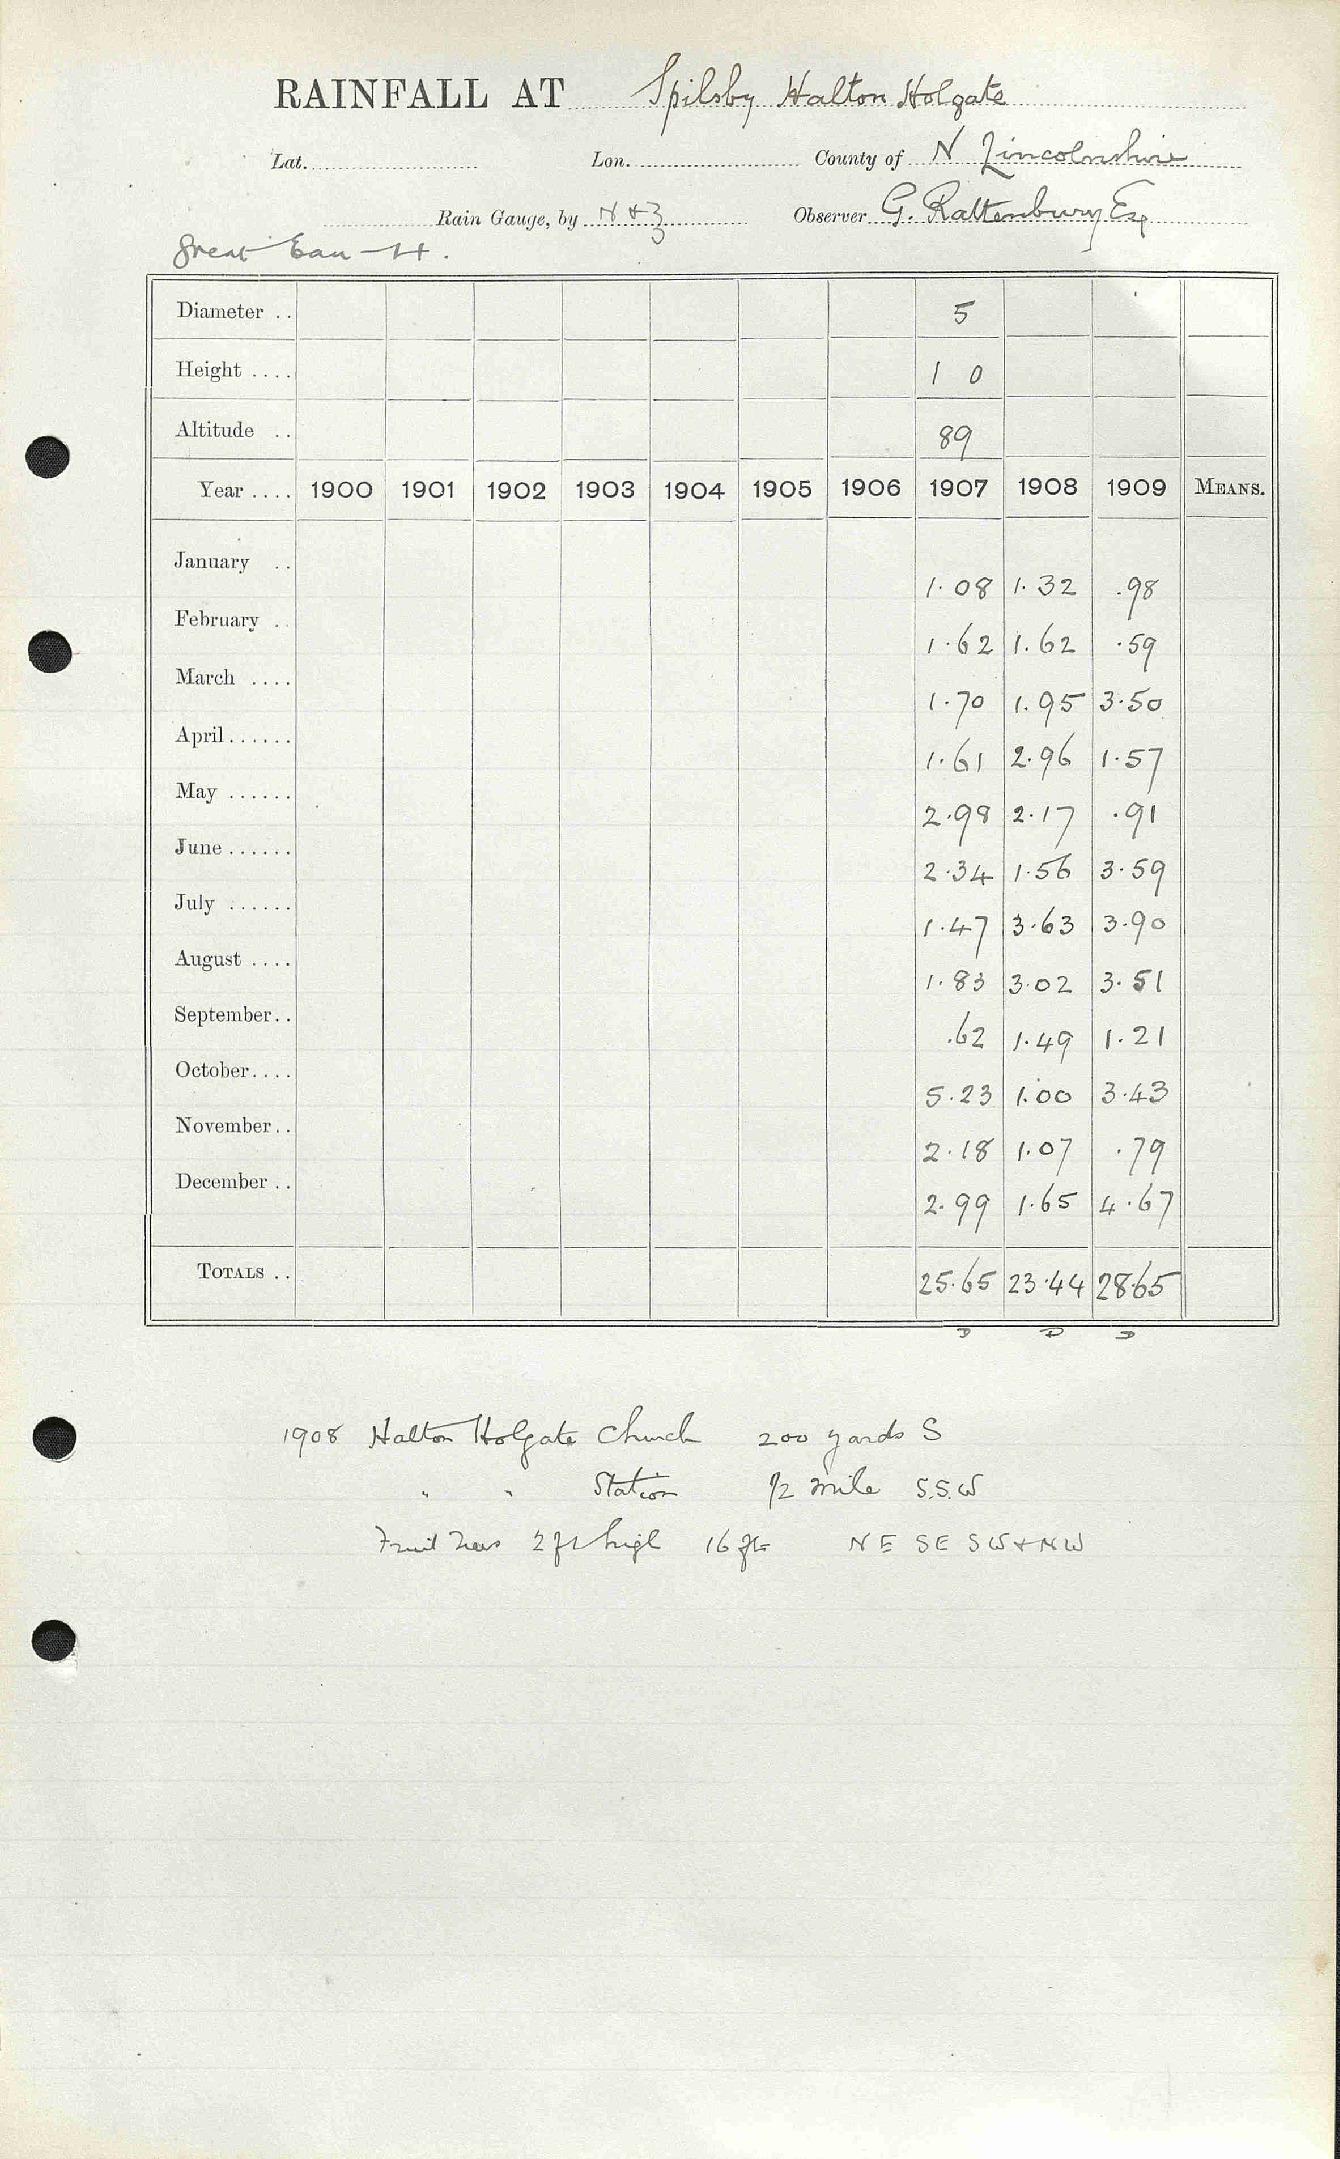 RAINFALL AT Spilsby Halton Holgate
Lat. Lon. County of N Lincolnshire
Rain Gauge, by N & Z Observer G. Rattenbury Esq
Great Eau – H.
Diameter .. 5
Height .... 1 0
Altitude .. 89
Year .... 1900 1901 1902 1903 1904 1905 1906 1907 1908 1909 MEANS.
January .. 1.08 1.32 .98
February .. 1.62 1.62 .59
March .... 1.70 1.95 3.50
April...... 1.61 2.96 1.57
May ...... 2.98 2.17 .91
June ...... 2.34 1.56 3.59
July ...... 1.47 3.63 3.90
August .... 1.83 3.02 3.51
September.. .62 1.49 1.21
October.... 5.23 1.00 3.43
November.. 2.18 1.07 .79
December .. 2.99 1.65 4.67
TOTALS .. 25.65 23.44 28.65
D D D
1908 Halton Holgate Church 200 yards S
" " Station 1/2 mile S.S.W
Fruit Trees 2 ft high 16 ft NE SE SW & NW